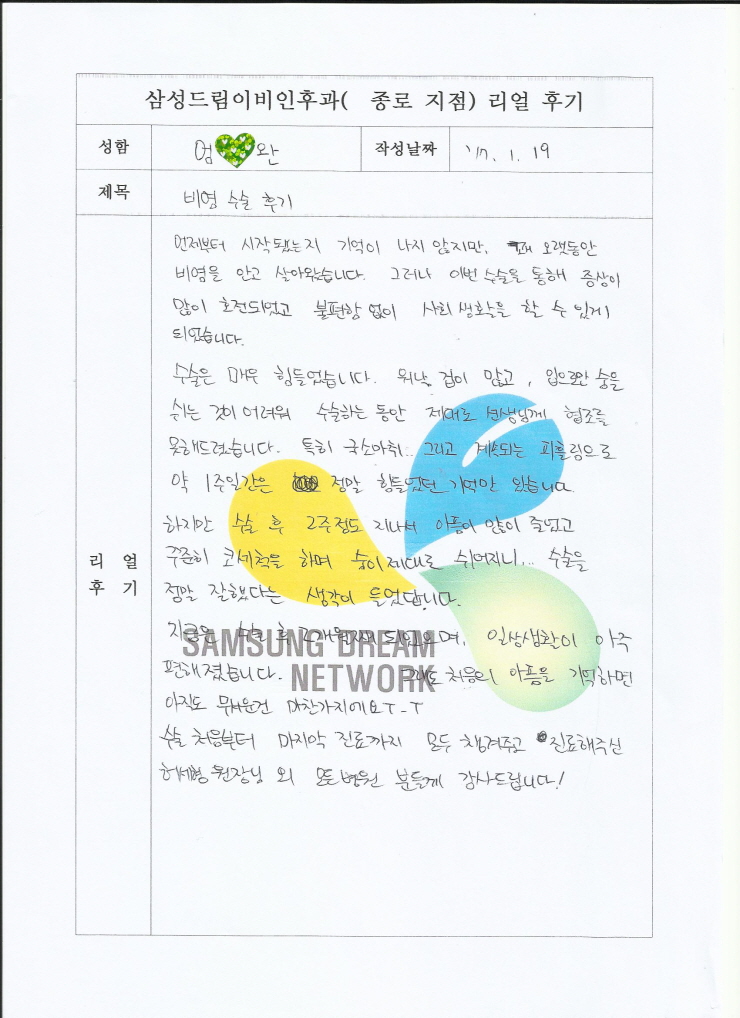 삼성드림이비인후과( 종로 지점) 리얼 후기
성함 엄 완 작성날짜 '17. 1. 19
제목 비염 수술 후기
리얼 후기
언제부터 시작됐는지 기억이 나지 않지만, 꽤 오랫동안
비염을 안고 살아왔습니다. 그러나 이번 수술을 통해 증상이
많이 호전되었고 불편함 없이 사회 생활을 할 수 있게
되었습니다.
수술은 매우 힘들었습니다. 워낙 겁이 많고, 입으로만 숨을
쉬는 것이 어려워 수술하는 동안 제대로 선생님께 협조를
못해드렸습니다. 특히 국소마취.. 그리고 계속되는 피흘림으로
약 1주일간은 정말 힘들었던 기억만 있습니다
하지만 수술 후 2주정도 지나서 아픔이 많이 줄었고
꾸준히 코세척을 하며 숨이 제대로 쉬어지니... 수술을
정말 잘했다는 생각이 들었답니다.
지금은 수술 후 2개월째 되었으며, 일상생활이 아주
편해졌습니다. 그래도 처음의 아픔을 기억하면
아직도 무서운건 마찬가지에요T-T
수술 처음부터 마지막 진료까지 모두 챙겨주고 진료해주신
허세형 원장님 외 모든 병원 분들께 감사드립니다!
SAMSUNG DREAM
NETWORK